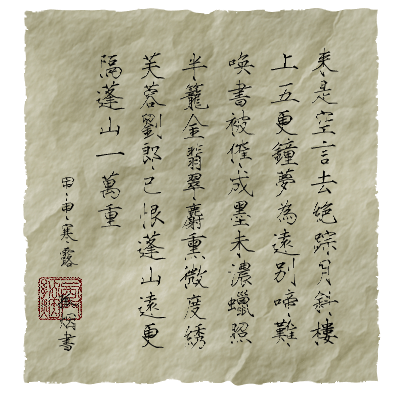 来是空言去絶踪月斜樓
上五更鐘夢為遠別啼難
喚書被催成墨未濃蠟照
半籠金翡翠麝熏微度綉
芙蓉劉郎已恨蓬山遠更
隔蓬山一萬重
甲申寒露書